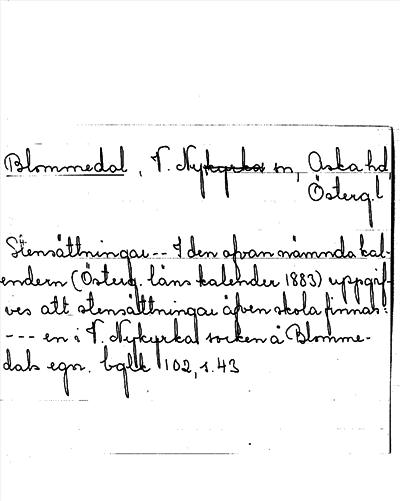 Blommedal, V. Nykyrka sn, Aska hd,
Österg.l
Stensättningar -- I den ofvan nämnda kal-
endern (Österg. läns kalender 1883) uppgif-
ves att stensättningar äfven skola finnas:
--- en i V. Nykyrka socken å Blomme-
dals egor. bglk 102, s. 43